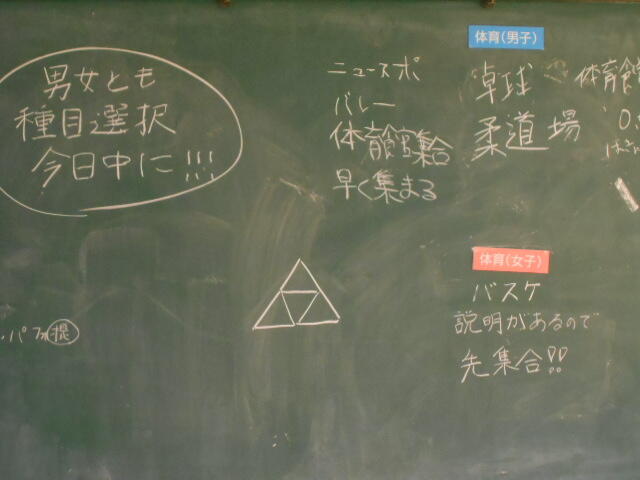 男女とも
種目選択
今日中に!!!
ニュースポ
バレー
体育館集合
早く集まる
体育(男子)
卓球
柔道場
体育館
体育(女子)
バスケ
説明があるので
先集合!!